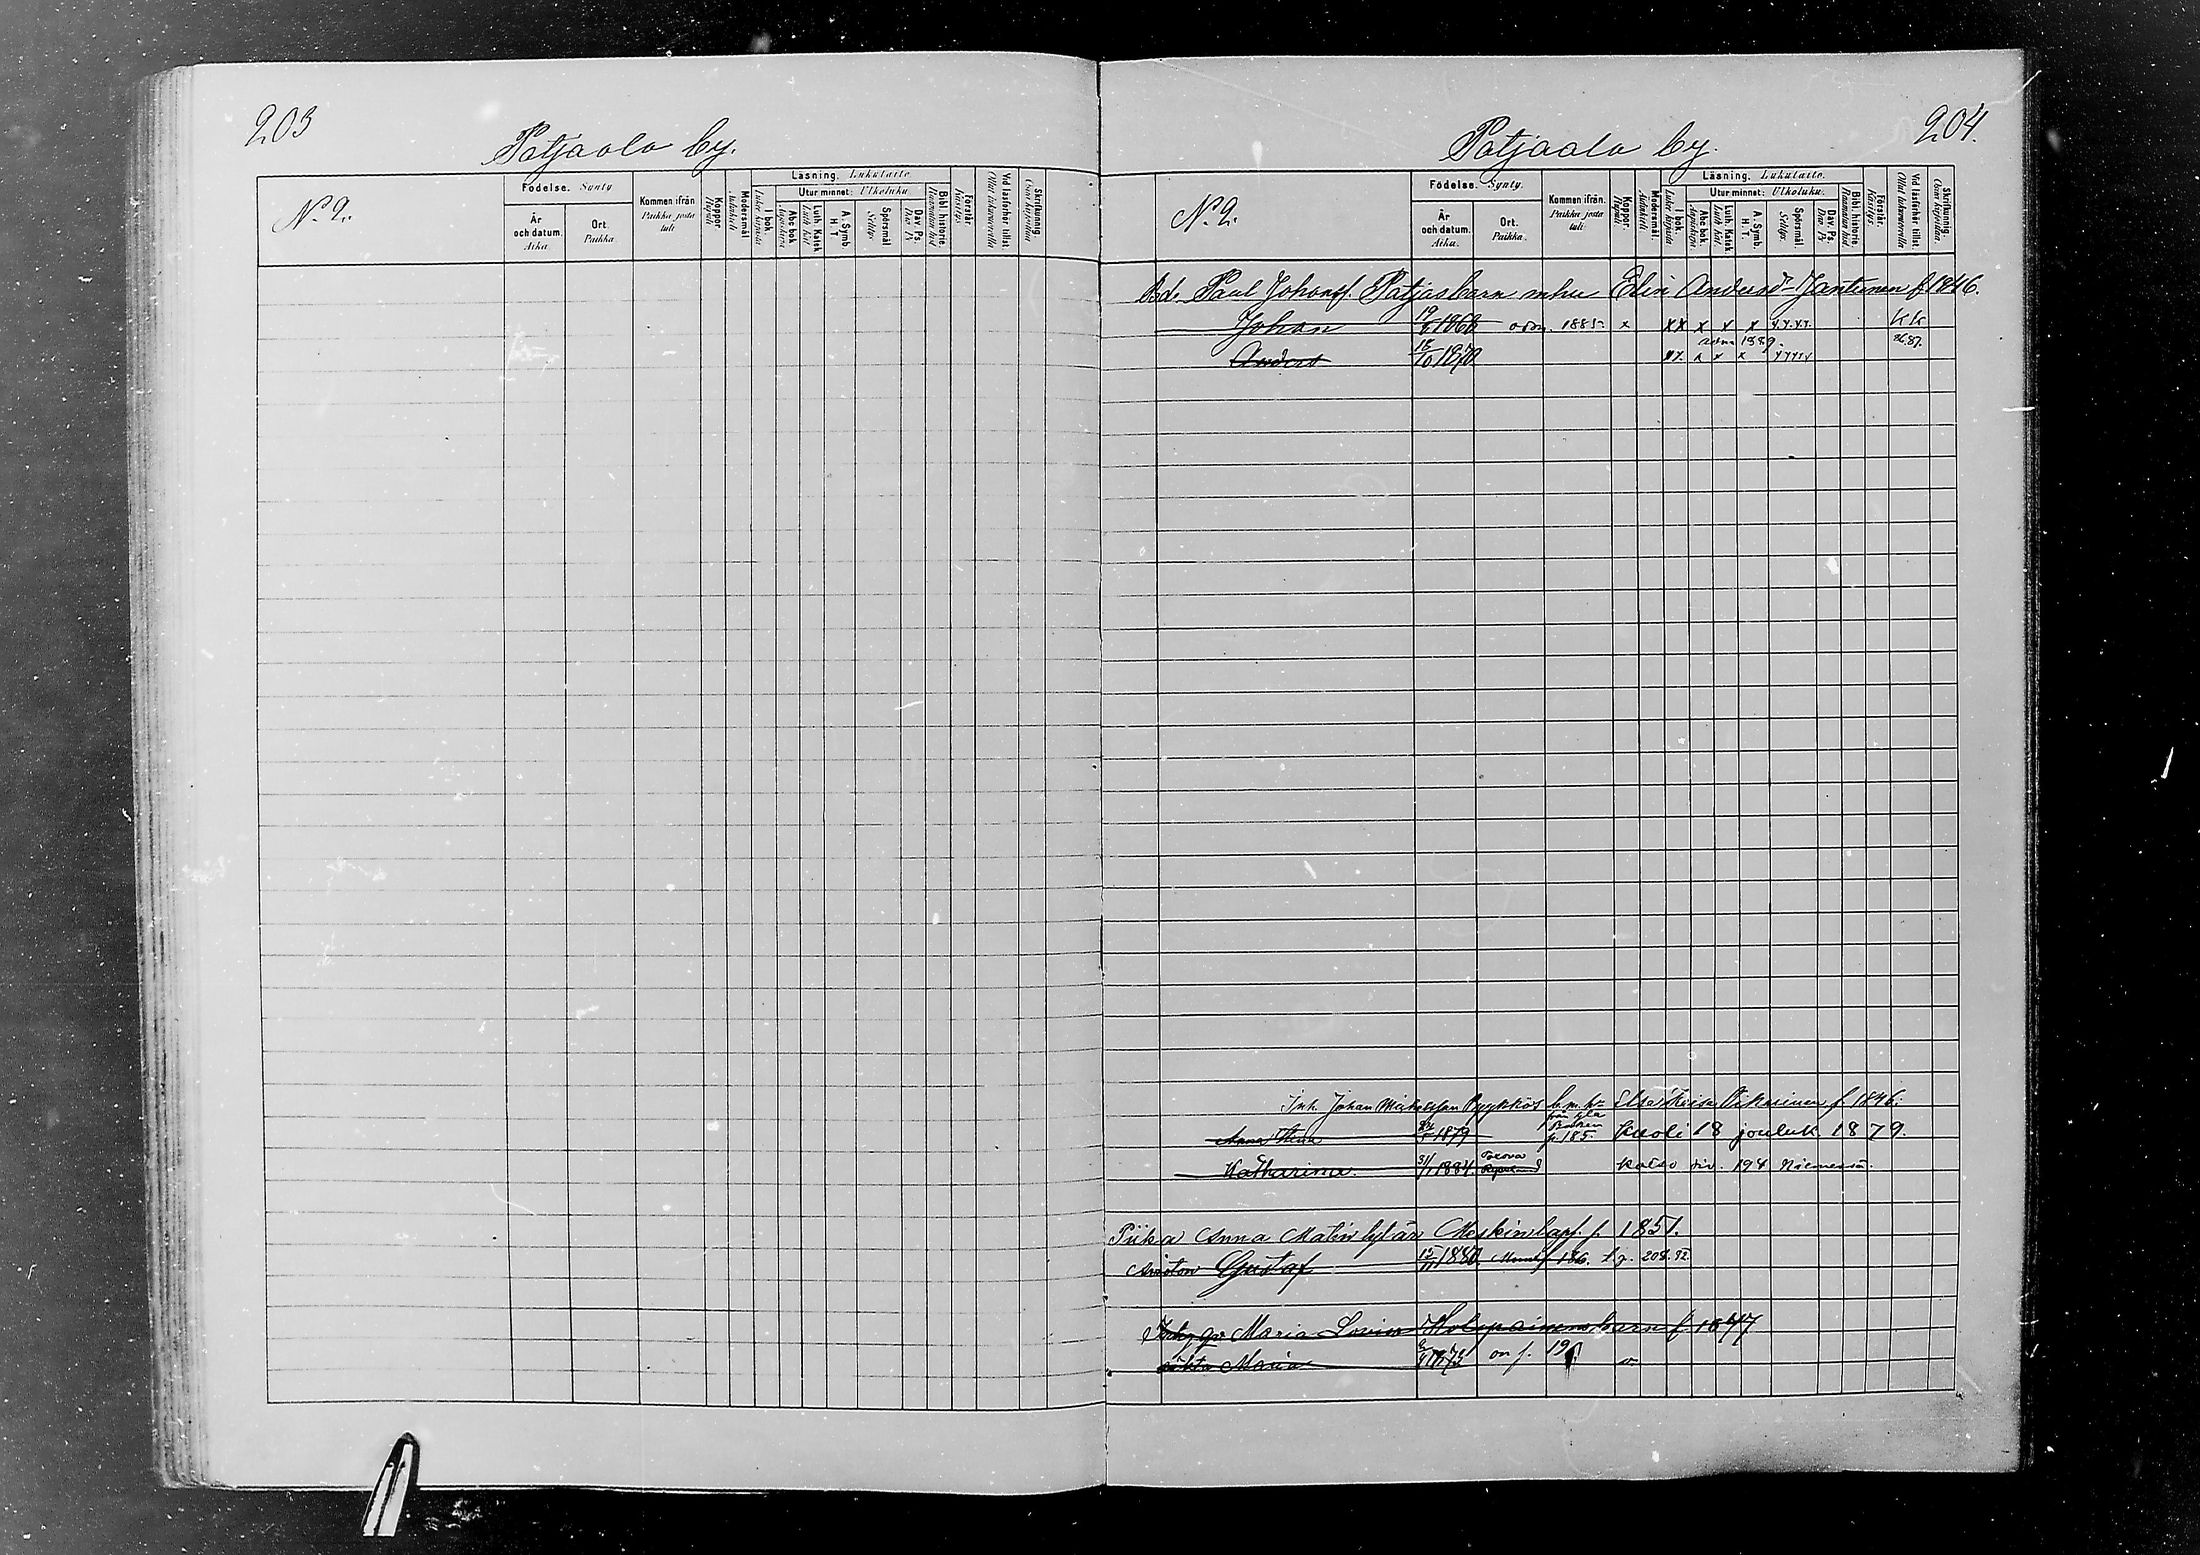 203
Patjaala by.
N:o 2.
Födelse. Synty
År och datum. Aika.
Ort. Paikka.
Kommen ifrån Paikka josta tuli
Koppor. Rupuli
Modersmål Äidinkieli
Läsning. Lukutaito.
I bok. Lukee kirjasta
Utur minnet: Ulkoluku
Abc bok Aapiskirja
Luth. Katek. Luth. Kat.
A. Symb. H. T.
Spörsmål
Dav. Ps. Dav. Ps
Bibl. historie.
Förstår. Käsitys.
Vid läsförhör tillst. Ollut lukuvuorolla
Skriftkunnig. Osaa kirjoittaa
204.
Patjaala by.
N:o 2.
Födelse. Synty.
År och datum. Aika.
Ort. Paikka.
Kommen ifrån. Paikka josta tuli
Koppor. Rupuli
Modersmål. Äidinkieli
Läsning. Lukutaito.
I bok. Lukee kirjasta
Utur minnet: Ulkoluku.
Abc bok Aapiskirja
Luth. Katek. Luth. Kat.
A. Symb. H. T.
Spörsmål.
Dav. Ps. Dav. Ps
Bibl. historie
Förstår. Käsitys.
Vid läsförhör tillst. Ollut lukuvuorolla
Skriftkunnig. Osaa kirjoittaa
Bd. Paul Johanss. Patjas barn m hu Elin Andersd:r Jantunen f 1846.
Johan 19 1868 adm. 1885 x xx x x x k k
adm 1889. 86.87.
Anders 18/10 1870 x x x
Inh. Johan Michelsson Pyykkös b. m. h. Elsa f 1846.
Anna 1879 p. 185. Kuoli 18 jouluk 1879.
Katharina. 31/1 1884. katso siv. 194 Niemessä.
Piika Anna Matin tytär Meskin laps. s. 1851.
Avioton Gustaf 15/11 1880. 186. 208.92
Maria Lovisa Holopainens barn f 1847
oäkta Maria 1875 on s. 19